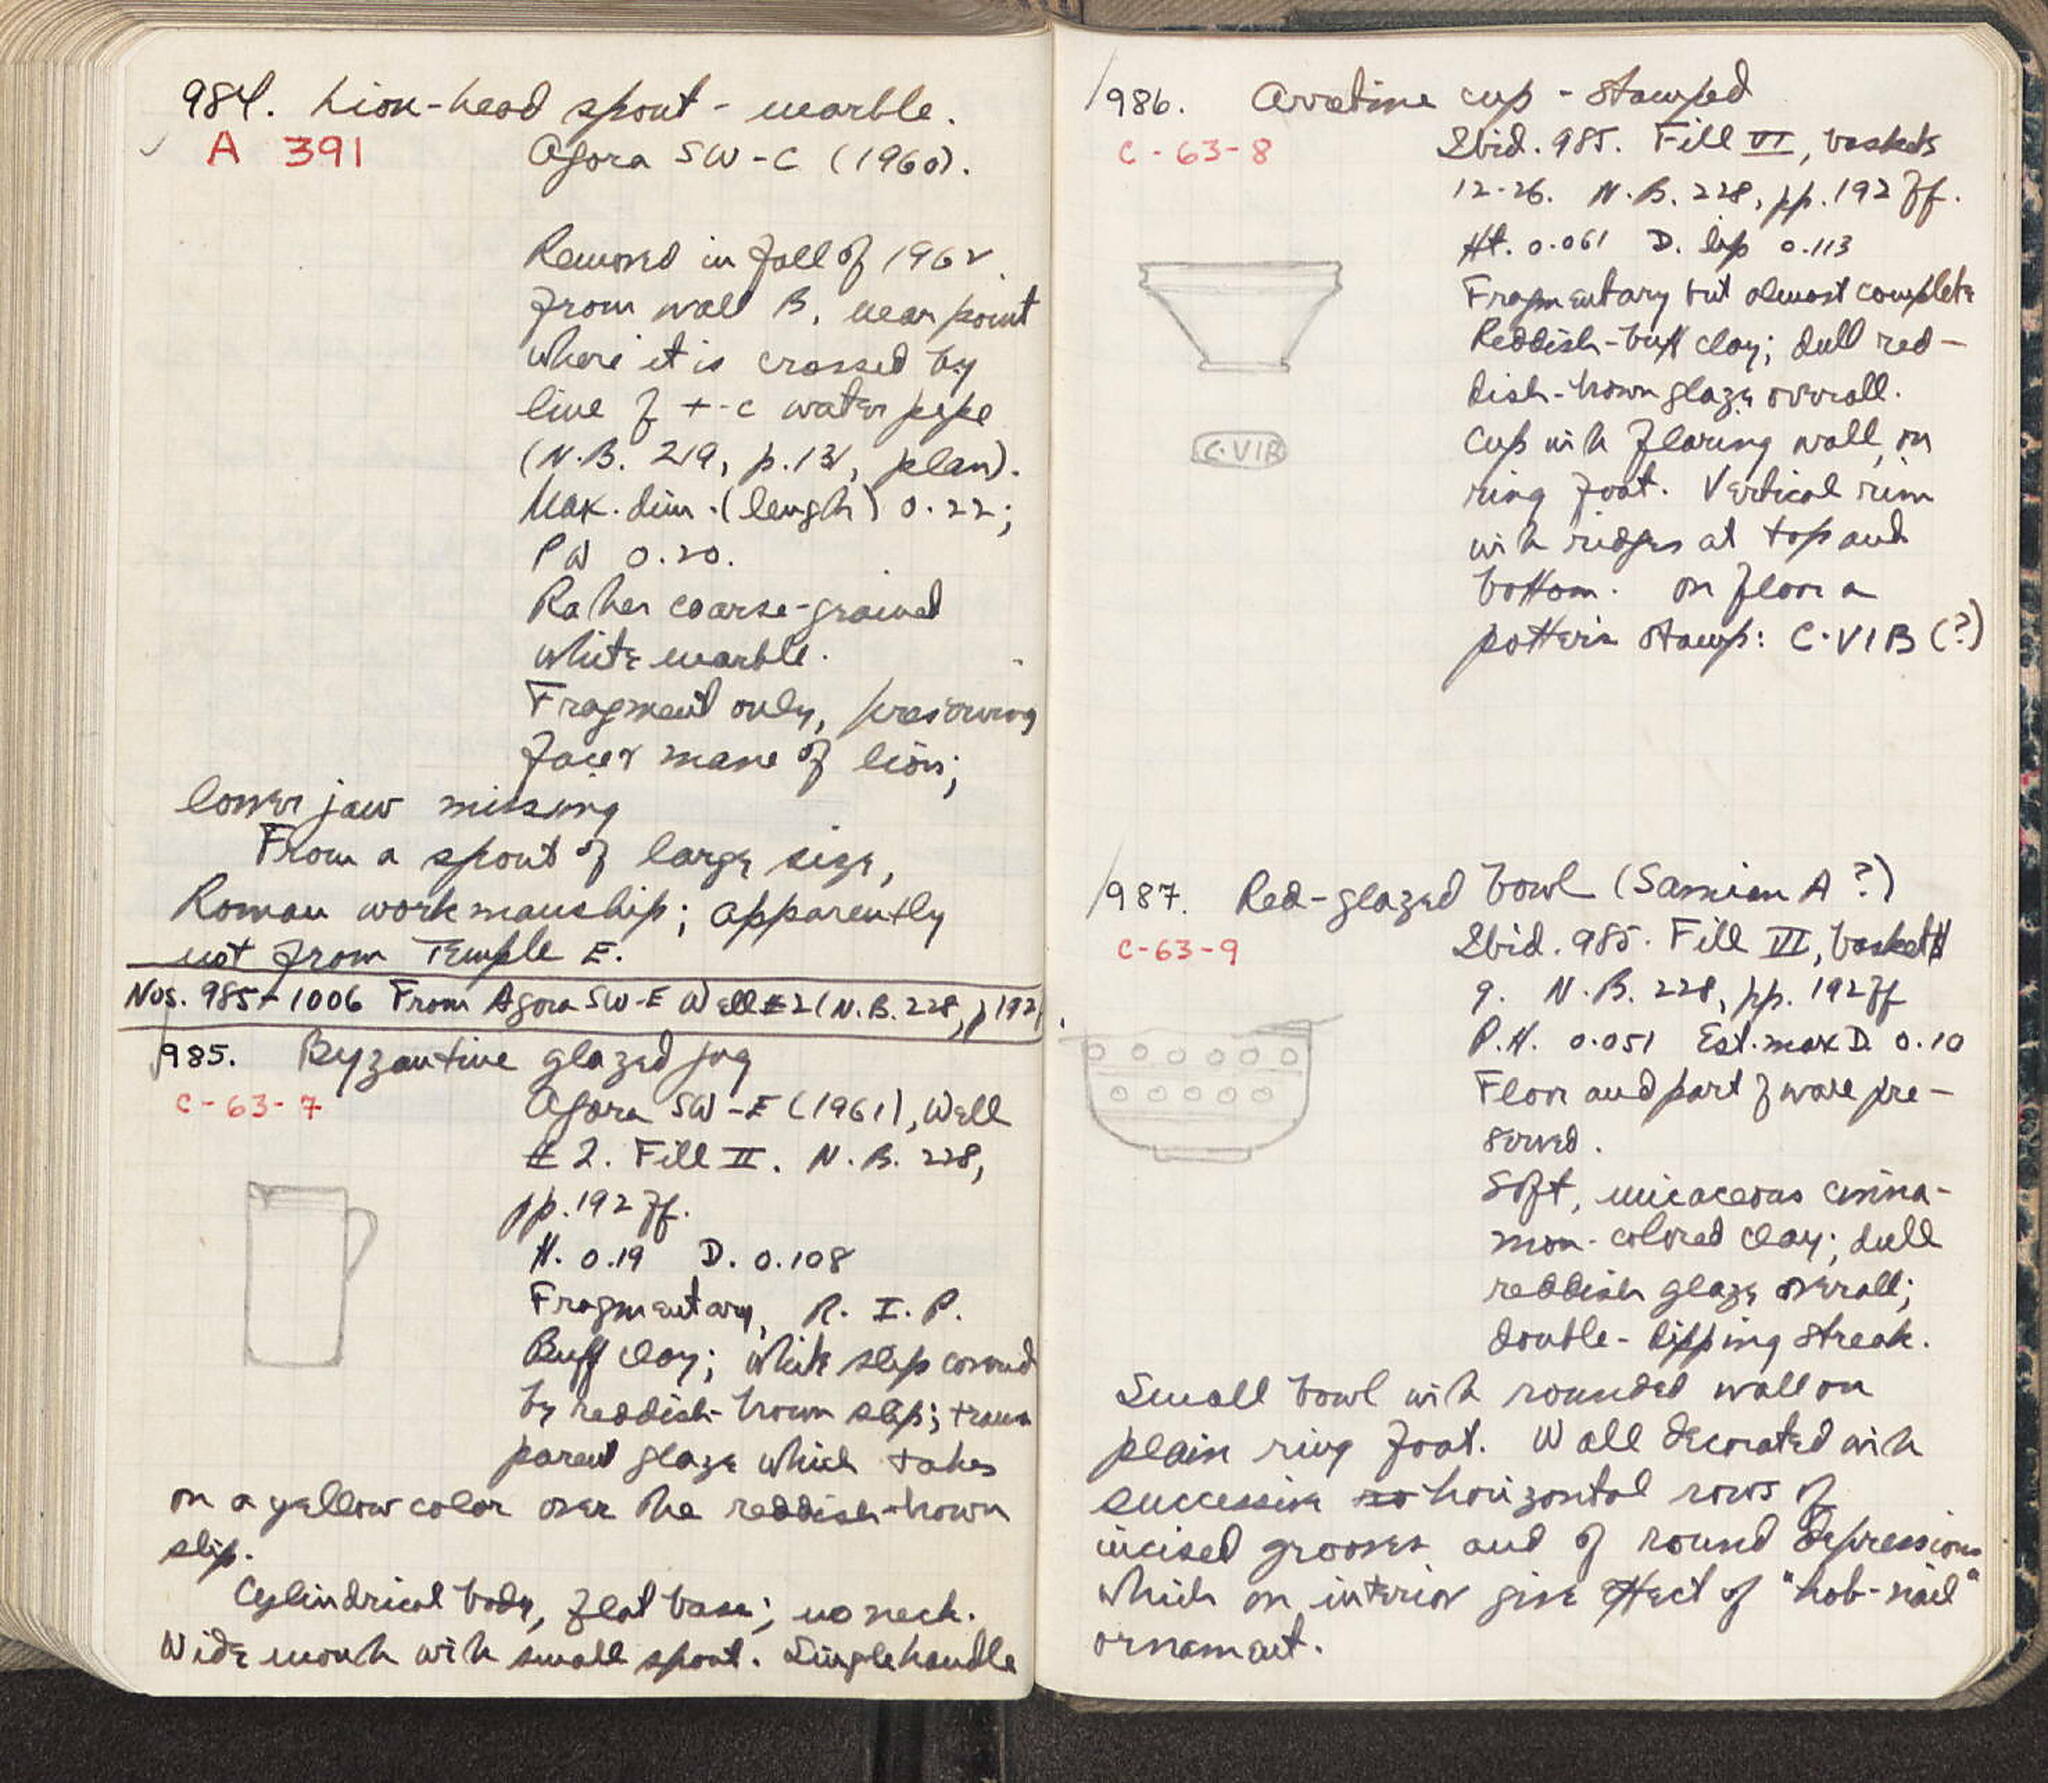 984. Lion-head spout - marble.
A 391
Agora SW-C (1960).
Removed in fall of 1962
from wall B, near point
where it is crossed by
line of t-c water pipe
(N.B. 219, p. 131, plan).
Max. dim. (length) 0.22;
PW 0.20.
Rather coarse-grained
white marble.
Fragment only, preserving
face & mane of lion;
lower jaw missing
From a spout of large size,
Roman workmanship; apparently
not from Temple E.
Nos. 985-1006 From Agora SW-E Well #2 (N.B. 228, p 192)
985. Byzantine glazed jug
C-63-7
Agora SW-E (1961), Well
# 2. Fill II. N.B. 228,
pp. 192 ff.
H. 0.19 D. 0.108
Fragmentary, R. I. P.
Buff clay; white slip covered
by reddish-brown slip; trans
parent glaze which takes
on a yellow color over the reddish-brown
slip.
Cylindrical body, flat base; no neck.
Wide mouth with small spout. Single handle
/986. Arretine cup - stamped
C-63-8
Ibid. 985. Fill VI, baskets
12-26. N.B. 228, pp. 192 ff.
Ht. 0.061 D. lip 0.113
Fragmentary but almost complete
Reddish-buff clay; dull red-
dish-brown glaze overall.
Cup with flaring wall, on
ring foot. Vertical rim
with ridges at top and
bottom. On floor a
potter's stamp: C·VIB (?)
C·VIB
/987. Red-glazed bowl (Samian A?)
C-63-9
Ibid. 985. Fill VI, basket
9. N.B. 228, pp. 192 ff
P.H. 0.051 Est. max D. 0.10
Floor and part of wall pre-
served.
Soft, micaceous cinna-
mon-colored clay; dull
reddish glaze overall;
double-dipping streak.
Small bowl with rounded wall on
plain ring foot. Wall decorated with
successive ro horizontal rows of
incised grooves and of round depressions
which on interior give effect of "hob-nail"
ornament.